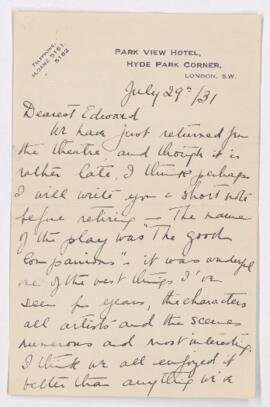 TELEPHONE.
SLOANE 5161
5162
PARK VIEW HOTEL,
HYDE PARK CORNER,
LONDON, S.W.
July 29th/31
Dearest Edward
We have just returned from
the theatre, and though it is
rather late, I think perhaps
I will write you a short note
before retiring – The name
of the play was "The Good
Companions" – it was wonderful
one of the best things I've
seen for years, the characters
all artists and the scenes
numerous and most interesting.
I think we all enjoyed it
better than anything we've